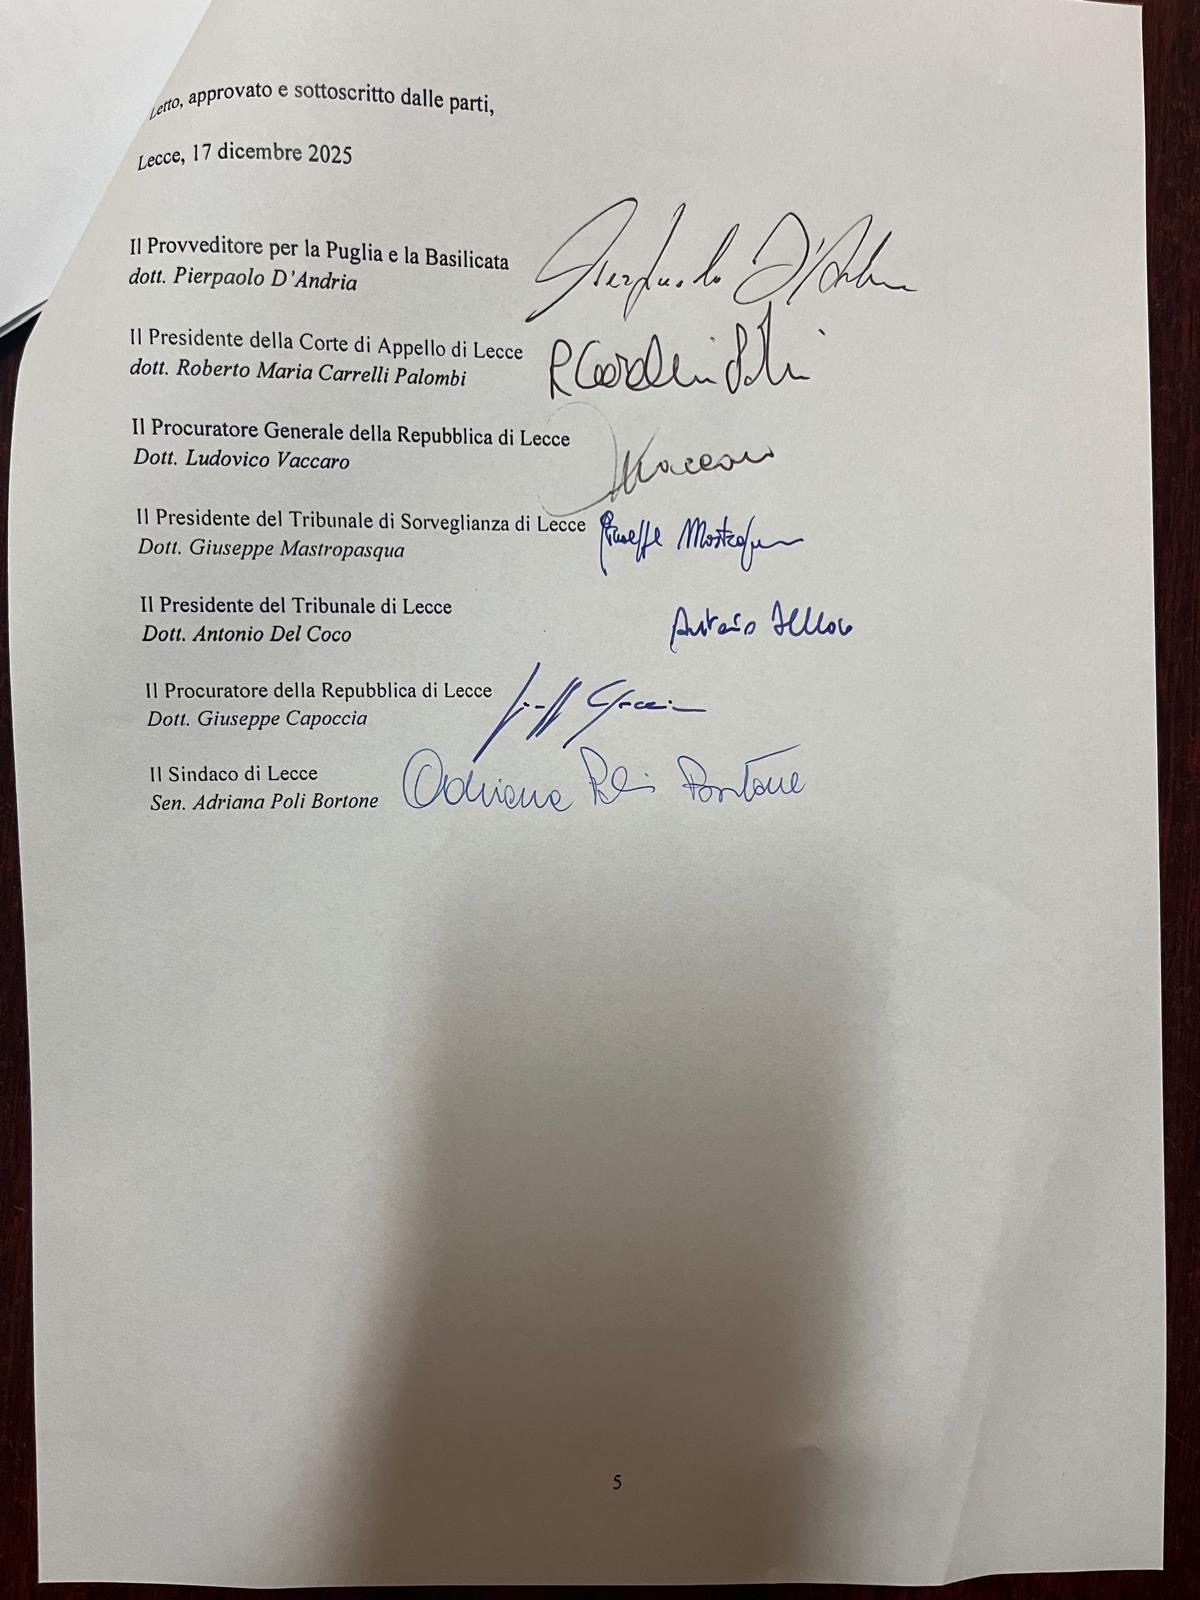 Letto, approvato e sottoscritto dalle parti,
Lecce, 17 dicembre 2025
Il Provveditore per la Puglia e la Basilicata
dott. Pierpaolo D'Andria
Pierpaolo D'Andria
Il Presidente della Corte di Appello di Lecce
dott. Roberto Maria Carrelli Palombi
Il Procuratore Generale della Repubblica di Lecce
Dott. Ludovico Vaccaro
Vaccaro
Il Presidente del Tribunale di Sorveglianza di Lecce
Dott. Giuseppe Mastropasqua
Giuseppe
Il Presidente del Tribunale di Lecce
Dott. Antonio Del Coco
Antonio
Il Procuratore della Repubblica di Lecce
Dott. Giuseppe Capoccia
Il Sindaco di Lecce
Sen. Adriana Poli Bortone
Adriana Poli Bortone
5